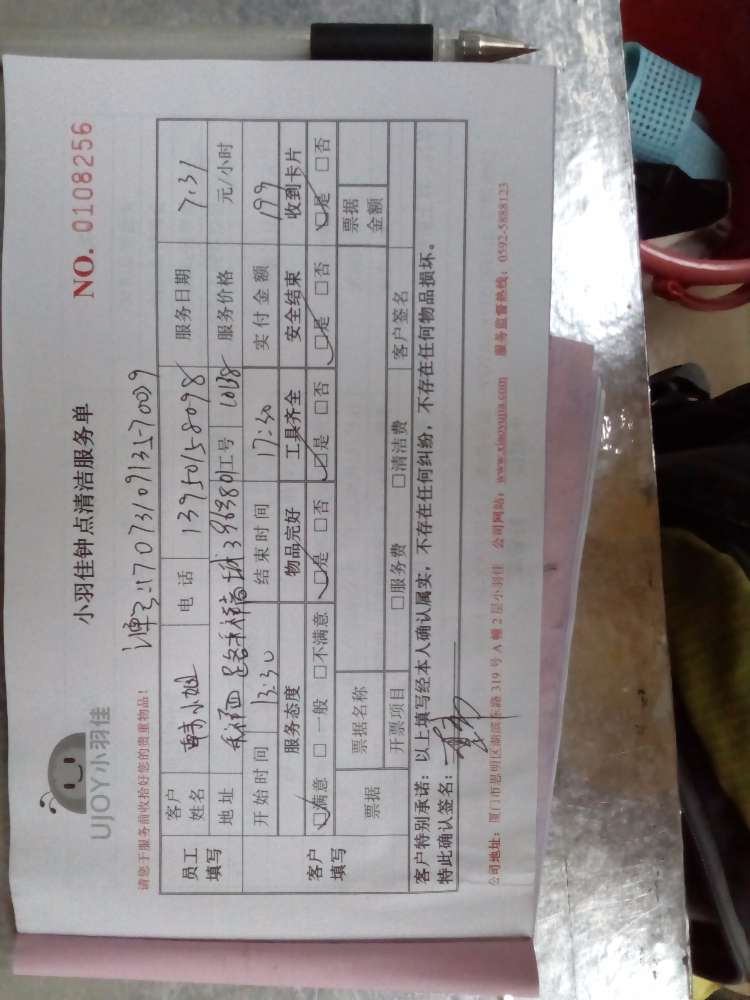 UJOY小羽佳
小羽佳钟点清洁服务单
NO. 0108256
请您于服务前收拾好您的贵重物品！
员工填写 客户姓名 小姐 电话 13950158098 服务日期 7.31
地址 工号 服务价格 元/小时
开始时间 13:30 结束时间 17:30 实付金额 199
客户填写 服务态度 物品完好 工具齐全 安全结束 收到卡片
☑满意 □一般 □不满意 ☑是 □否 ☑是 □否 ☑是 □否 ☑是 □否
票据 票据名称 票据金额
开票项目 □服务费 □清洁费 客户签名
客户特别承诺：以上填写经本人确认属实，不存在任何纠纷，不存在任何物品损坏。
特此确认签名：
公司地址：厦门市思明区湖滨东路 319 号 A 幢 2 层小羽佳 公司网站：www.xiaoyujia.com 服务监督热线：0592-5888123